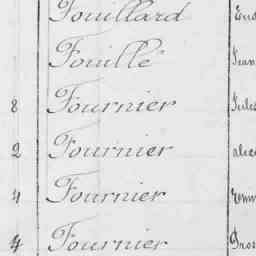 Fouillard
Fouillé
8 Fournier Jules
2 Fournier
4 Fournier
4 Fournier